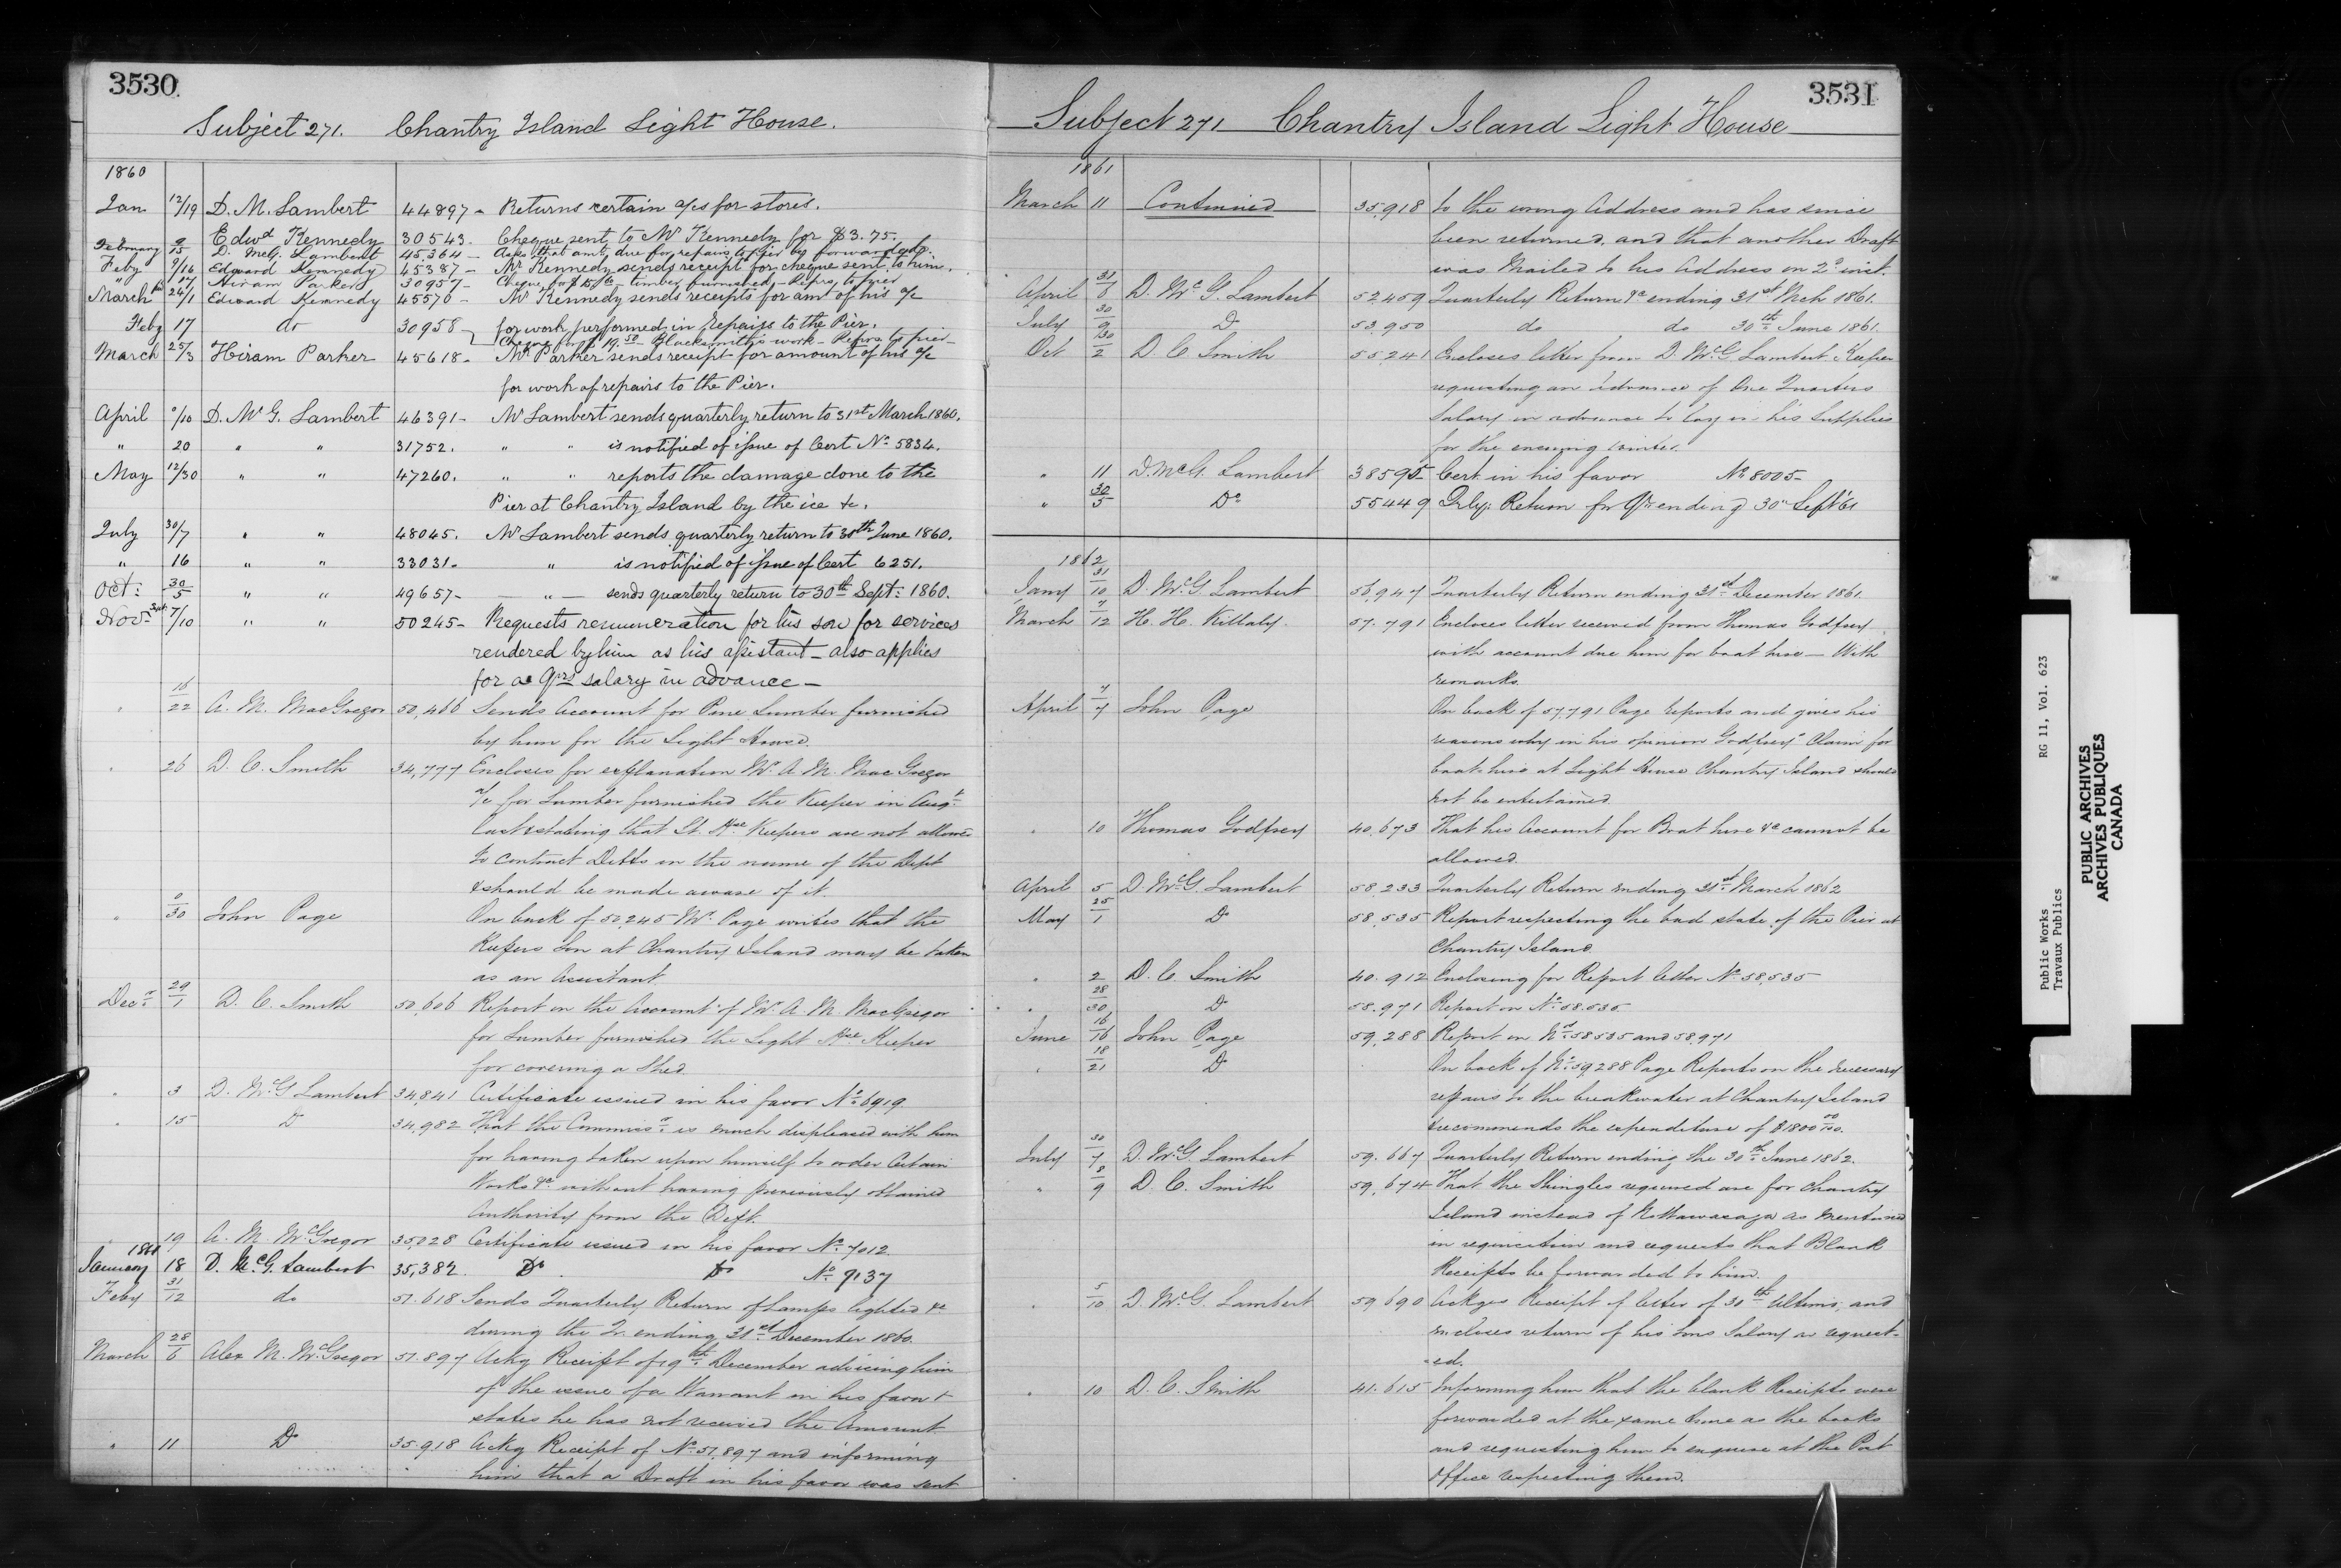 3530
Subject 271. Chantry Island Light House.
1860
Jan 12/19 D. M. Lambert 44897 - Returns certain a/cs for stores.
February 9/15 Edwd Kennedy 30543. Cheque sent to Mr Kennedy for $3.75.
" D. McG. Lambert 45,364 - Asks that amt due for repairs to Pier be forwarded
Feby 9/16 Edward Kennedy 45387 - Mr Kennedy sends receipt for cheque sent to him.
" 17 Hiram Parker 30957 - Cheque for timber furnished - Repairs to pier
March 24/1 Edward Kennedy 45570 - Mr Kennedy sends receipts for amt of his a/c
Feby 17 do 30958 for work performed in repairs to the Pier.
Cheque for $19.50 Blacksmith's work - Repairs to pier -
March 25/3 Hiram Parker 45618 - Mr Parker sends receipt for amount of his a/c
for work of repairs to the Pier.
April 9/10 D. Mc G. Lambert 46391 - Mr Lambert sends quarterly return to 31st March 1860.
" 20 " " 31752. " " is notified of issue of Cert No 5834.
May 12/30 " " 47260. " " reports the damage done to the
Pier at Chantry Island by the ice &c.
July 30/7 " " 48045. Mr Lambert sends quarterly return to 30th June 1860.
" 16 " " 33031 - " is notified of issue of Cert 6251.
Oct: 30/5 " " 49657 - — " — sends quarterly return to 30th Sept: 1860.
Novr Sept 7/10 " " 50245 - Requests remuneration for his son for services
rendered by him as his assistant - also applies
for a qrs salary in advance -
" 16/22 A. M. MacGregor 50,466 Sends Account for Pine Lumber furnished
by him for the Light House.
" 26 D. C. Smith 34,777 Encloses for explanation Mr. A. M. MacGregor
a/c for Lumber furnished the Keeper in Augt
last stating that Lt. Hse Keepers are not allowed
to contract Debts in the name of the Dept
& should be made aware of it.
" 0/30 John Page On back of 50,245 Mr. Page writes that the
Keepers Son at Chantry Island may be taken
as an Assistant.
Decr 29/1 D. C. Smith 50,606 Report on the Account of Mr. A. M. MacGregor
for Lumber furnished the Light Hse Keeper
for covering a Shed.
" 3 D. McG Lambert 34,841 Certificate issued in his favor No 6919.
" 15 Do 34,982 That the Commissr is much displeased with him
for having taken upon himself to order Certain
Works &c without having previously obtained
Authority from the Dept.
" 19 A. M. McGregor 35,028 Certificate issued in his favor No 7012
1861
January 18 D. McG. Lambert 35,382. Do Do No 9137
Feby 31/12 do 51.618 Sends Quarterly Return of Lamps lighted &c
during the Qr. ending 31st December 1860.
March 28/6 Alex M. McGregor 51.897 Ackg Receipt of 19th December advising him
of the issue of a Warrant in his favor &
states he has not received the Amount
" 11 Do 35.918 Ackg Receipt of No 51,897 and informing
him that a Draft in his favor was sent
3531
Subject 271 Chantry Island Light House
1861
March 11 Continued 35,918 to the wrong Address and has since
been returned, and that another Draft
was Mailed to his Address on 2d inst.
April 31/8 D. McG. Lambert 52459 Quarterly Return &c ending 31st Mch 1861.
July 30/9 Do 53,950 do do 30th June 1861.
Oct 30/2 D. C. Smith 55241 Encloses letter from D. McG. Lambert Keeper
requesting an Advance of One Quarters
Salary in advance to lay in his Supplies
for the ensuing winter.
" 11 D. McG. Lambert 38595 Cert. in his favor No 8005 -
" 30/5 Do 55449 Qrly: Return for Qr ending 30th Sept '61
1862
Jany 31/10 D. McG. Lambert 56,947 Quarterly Return ending 31st December 1861.
March 7/12 H. H. Killaly 57.791 Encloses letter received from Thomas Godfrey
with account due him for boat hire — With
remarks.
April 7/7 John Page On back of 57,791 Page reports and gives his
reasons why in his opinion Godfrey's Claim for
boat-hire at Light House Chantry Island should
not be entertained.
" 10 Thomas Godfrey 40,673 That his Account for Boat hire &c cannot be
allowed.
April 5 D. McG. Lambert 58,233 Quarterly Return ending 31st March 1862
May 25/1 Do 58,535 Report respecting the bad state of the Pier at
Chantry Island.
" 2 D. C. Smith 40.912 Enclosing for Report letter No 58,535
" 28/30 Do 58.971 Report on No 58.535.
June 16/16 John Page 59,288 Report on Nos 58535 and 58,971
" 18/21 Do On back of No 59,288 Page Reports on the necessary
repairs to the breakwater at Chantry Island
& recommends the expenditure of $1800 00/00.
July 30/7 D. McG. Lambert 59.667 Quarterly Return ending the 30th June 1862.
" 8/9 D. C. Smith 59,674 That the Shingles required are for Chantry
Island instead of Nottawasaga as mentioned
in requisition and requests that Blank
Receipts be forwarded to him.
" 5/10 D. McG. Lambert 59.690 Ackges Receipt of letter of 30th Ultimo, and
encloses return of his sons Salary as request-
-ed.
" 10 D. C. Smith 41.615 Informing him that the blank Receipts were
forwarded at the same time as the books
and requesting him to enquire at the Post
Office respecting them.
Public Works RG 11, Vol. 623
Travaux Publics
PUBLIC ARCHIVES
ARCHIVES PUBLIQUES
CANADA